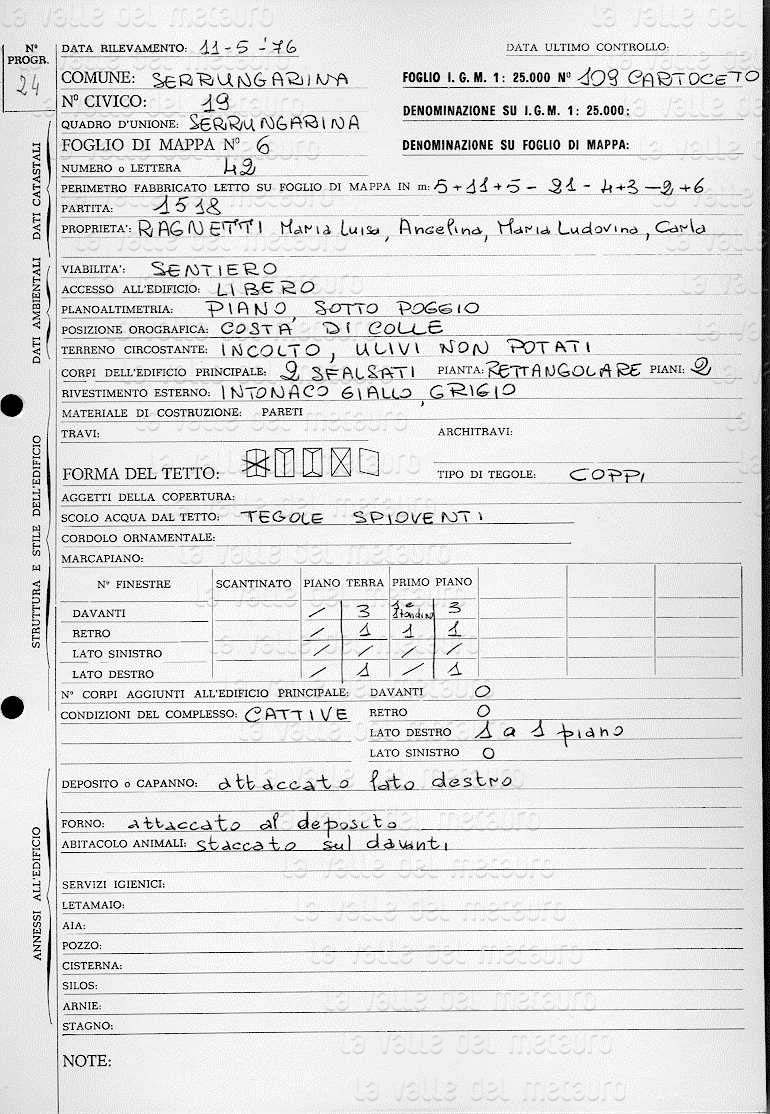 la valle del metauro
N° PROGR. 24
DATA RILEVAMENTO: 11-5-'76 DATA ULTIMO CONTROLLO:
COMUNE: SERRUNGARINA FOGLIO I.G.M. 1:25.000 N° 109 CARTOCETO
N° CIVICO: 19 DENOMINAZIONE SU I.G.M. 1:25.000:
QUADRO D'UNIONE: SERRUNGARINA
FOGLIO DI MAPPA N° 6 DENOMINAZIONE SU FOGLIO DI MAPPA:
NUMERO o LETTERA 42
PERIMETRO FABBRICATO LETTO SU FOGLIO DI MAPPA IN m: 5+11+5-21-4+3-2+6
PARTITA: 1518
PROPRIETA': RAGNETTI Maria Luisa, Angelina, Maria Ludovina, Carla
DATI CATASTALI
VIABILITA': SENTIERO
ACCESSO ALL'EDIFICIO: LIBERO
PLANOALTIMETRIA: PIANO, SOTTO POGGIO
POSIZIONE OROGRAFICA: COSTA DI COLLE
TERRENO CIRCOSTANTE: INCOLTO, ULIVI NON POTATI
DATI AMBIENTALI
CORPI DELL'EDIFICIO PRINCIPALE: 2 SFALSATI PIANTA: RETTANGOLARE PIANI: 2
RIVESTIMENTO ESTERNO: INTONACO GIALLO, GRIGIO
MATERIALE DI COSTRUZIONE: PARETI
TRAVI: ARCHITRAVI:
FORMA DEL TETTO: TIPO DI TEGOLE: COPPI
AGGETTI DELLA COPERTURA:
SCOLO ACQUA DAL TETTO: TEGOLE SPIOVENTI
CORDOLO ORNAMENTALE:
MARCAPIANO:
STRUTTURA E STILE DELL'EDIFICIO
N° FINESTRE SCANTINATO PIANO TERRA PRIMO PIANO
DAVANTI / 3 1 e 3
RETRO / 1 1 1
LATO SINISTRO / / / /
LATO DESTRO / 1 / 1
N° CORPI AGGIUNTI ALL'EDIFICIO PRINCIPALE: DAVANTI 0
CONDIZIONI DEL COMPLESSO: CATTIVE RETRO 0
LATO DESTRO 1 a 1 piano
LATO SINISTRO 0
DEPOSITO o CAPANNO: attaccato lato destro
FORNO: attaccato al deposito
ABITACOLO ANIMALI: staccato sul davanti
SERVIZI IGIENICI:
LETAMAIO:
AIA:
POZZO:
CISTERNA:
SILOS:
ARNIE:
STAGNO:
ANNESSI ALL'EDIFICIO
NOTE: